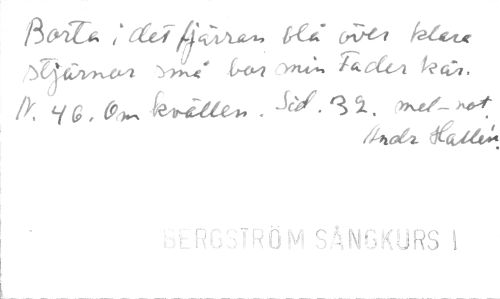 Borta i det fjärran blå över klara
stjärnor små bor min Fader kär.
N. 46. Om kvällen. Sid. 32. mel-not.
Andr Hallén.
BERGSTRÖM SÅNGKURS I